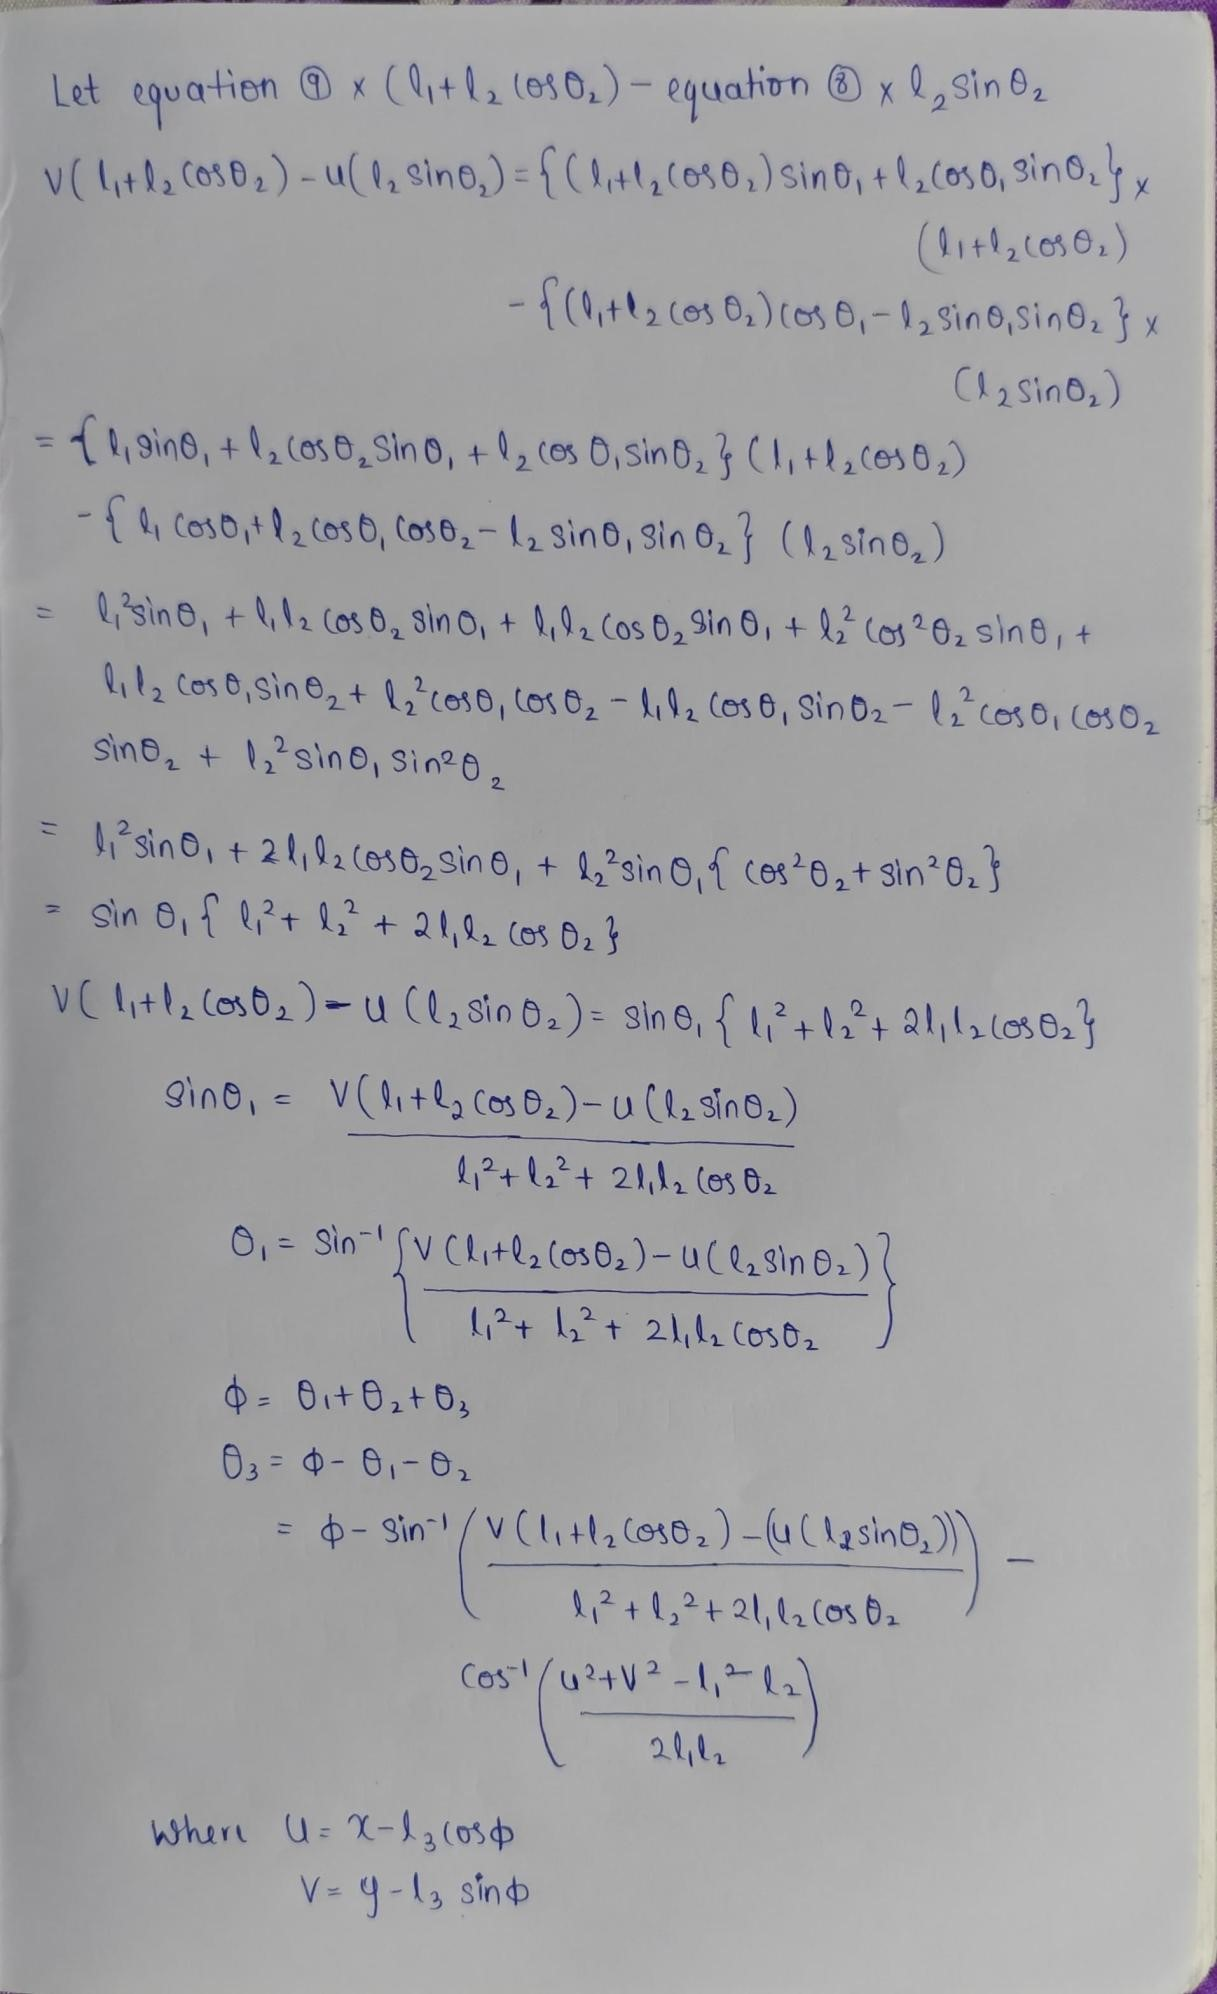 Let equation ⑨ × (l₁+l₂ cosθ₂) – equation ⑧ × l₂ sinθ₂
v(l₁+l₂ cosθ₂) – u(l₂ sinθ₂) = {(l₁+l₂ cosθ₂) sinθ₁ + l₂ cosθ₁ sinθ₂} ×
(l₁+l₂ cosθ₂)
– {(l₁+l₂ cosθ₂) cosθ₁ – l₂ sinθ₁ sinθ₂} ×
(l₂ sinθ₂)
= {l₁ sinθ₁ + l₂ cosθ₂ sinθ₁ + l₂ cosθ₁ sinθ₂} (l₁+l₂ cosθ₂)
– {l₁ cosθ₁ + l₂ cosθ₁ cosθ₂ – l₂ sinθ₁ sinθ₂} (l₂ sinθ₂)
= l₁² sinθ₁ + l₁l₂ cosθ₂ sinθ₁ + l₁l₂ cosθ₂ sinθ₁ + l₂² cos²θ₂ sinθ₁ +
l₁l₂ cosθ₁ sinθ₂ + l₂² cosθ₁ cosθ₂ – l₁l₂ cosθ₁ sinθ₂ – l₂² cosθ₁ cosθ₂
sinθ₂ + l₂² sinθ₁ sin²θ₂
= l₁² sinθ₁ + 2l₁l₂ cosθ₂ sinθ₁ + l₂² sinθ₁ {cos²θ₂ + sin²θ₂}
= sinθ₁ {l₁² + l₂² + 2l₁l₂ cosθ₂}
v(l₁+l₂ cosθ₂) – u(l₂ sinθ₂) = sinθ₁ {l₁² + l₂² + 2l₁l₂ cosθ₂}
sinθ₁ = v(l₁+l₂ cosθ₂) – u(l₂ sinθ₂)
l₁² + l₂² + 2l₁l₂ cosθ₂
θ₁ = sin⁻¹ {v(l₁+l₂ cosθ₂) – u(l₂ sinθ₂)}
l₁² + l₂² + 2l₁l₂ cosθ₂
ϕ = θ₁+θ₂+θ₃
θ₃ = ϕ – θ₁ – θ₂
= ϕ – sin⁻¹ (v(l₁+l₂ cosθ₂) – (u(l₂ sinθ₂))) –
l₁² + l₂² + 2l₁l₂ cosθ₂
cos⁻¹ (u²+v² – l₁² – l₂)
2l₁l₂
where u = x – l₃ cosϕ
v = y – l₃ sinϕ